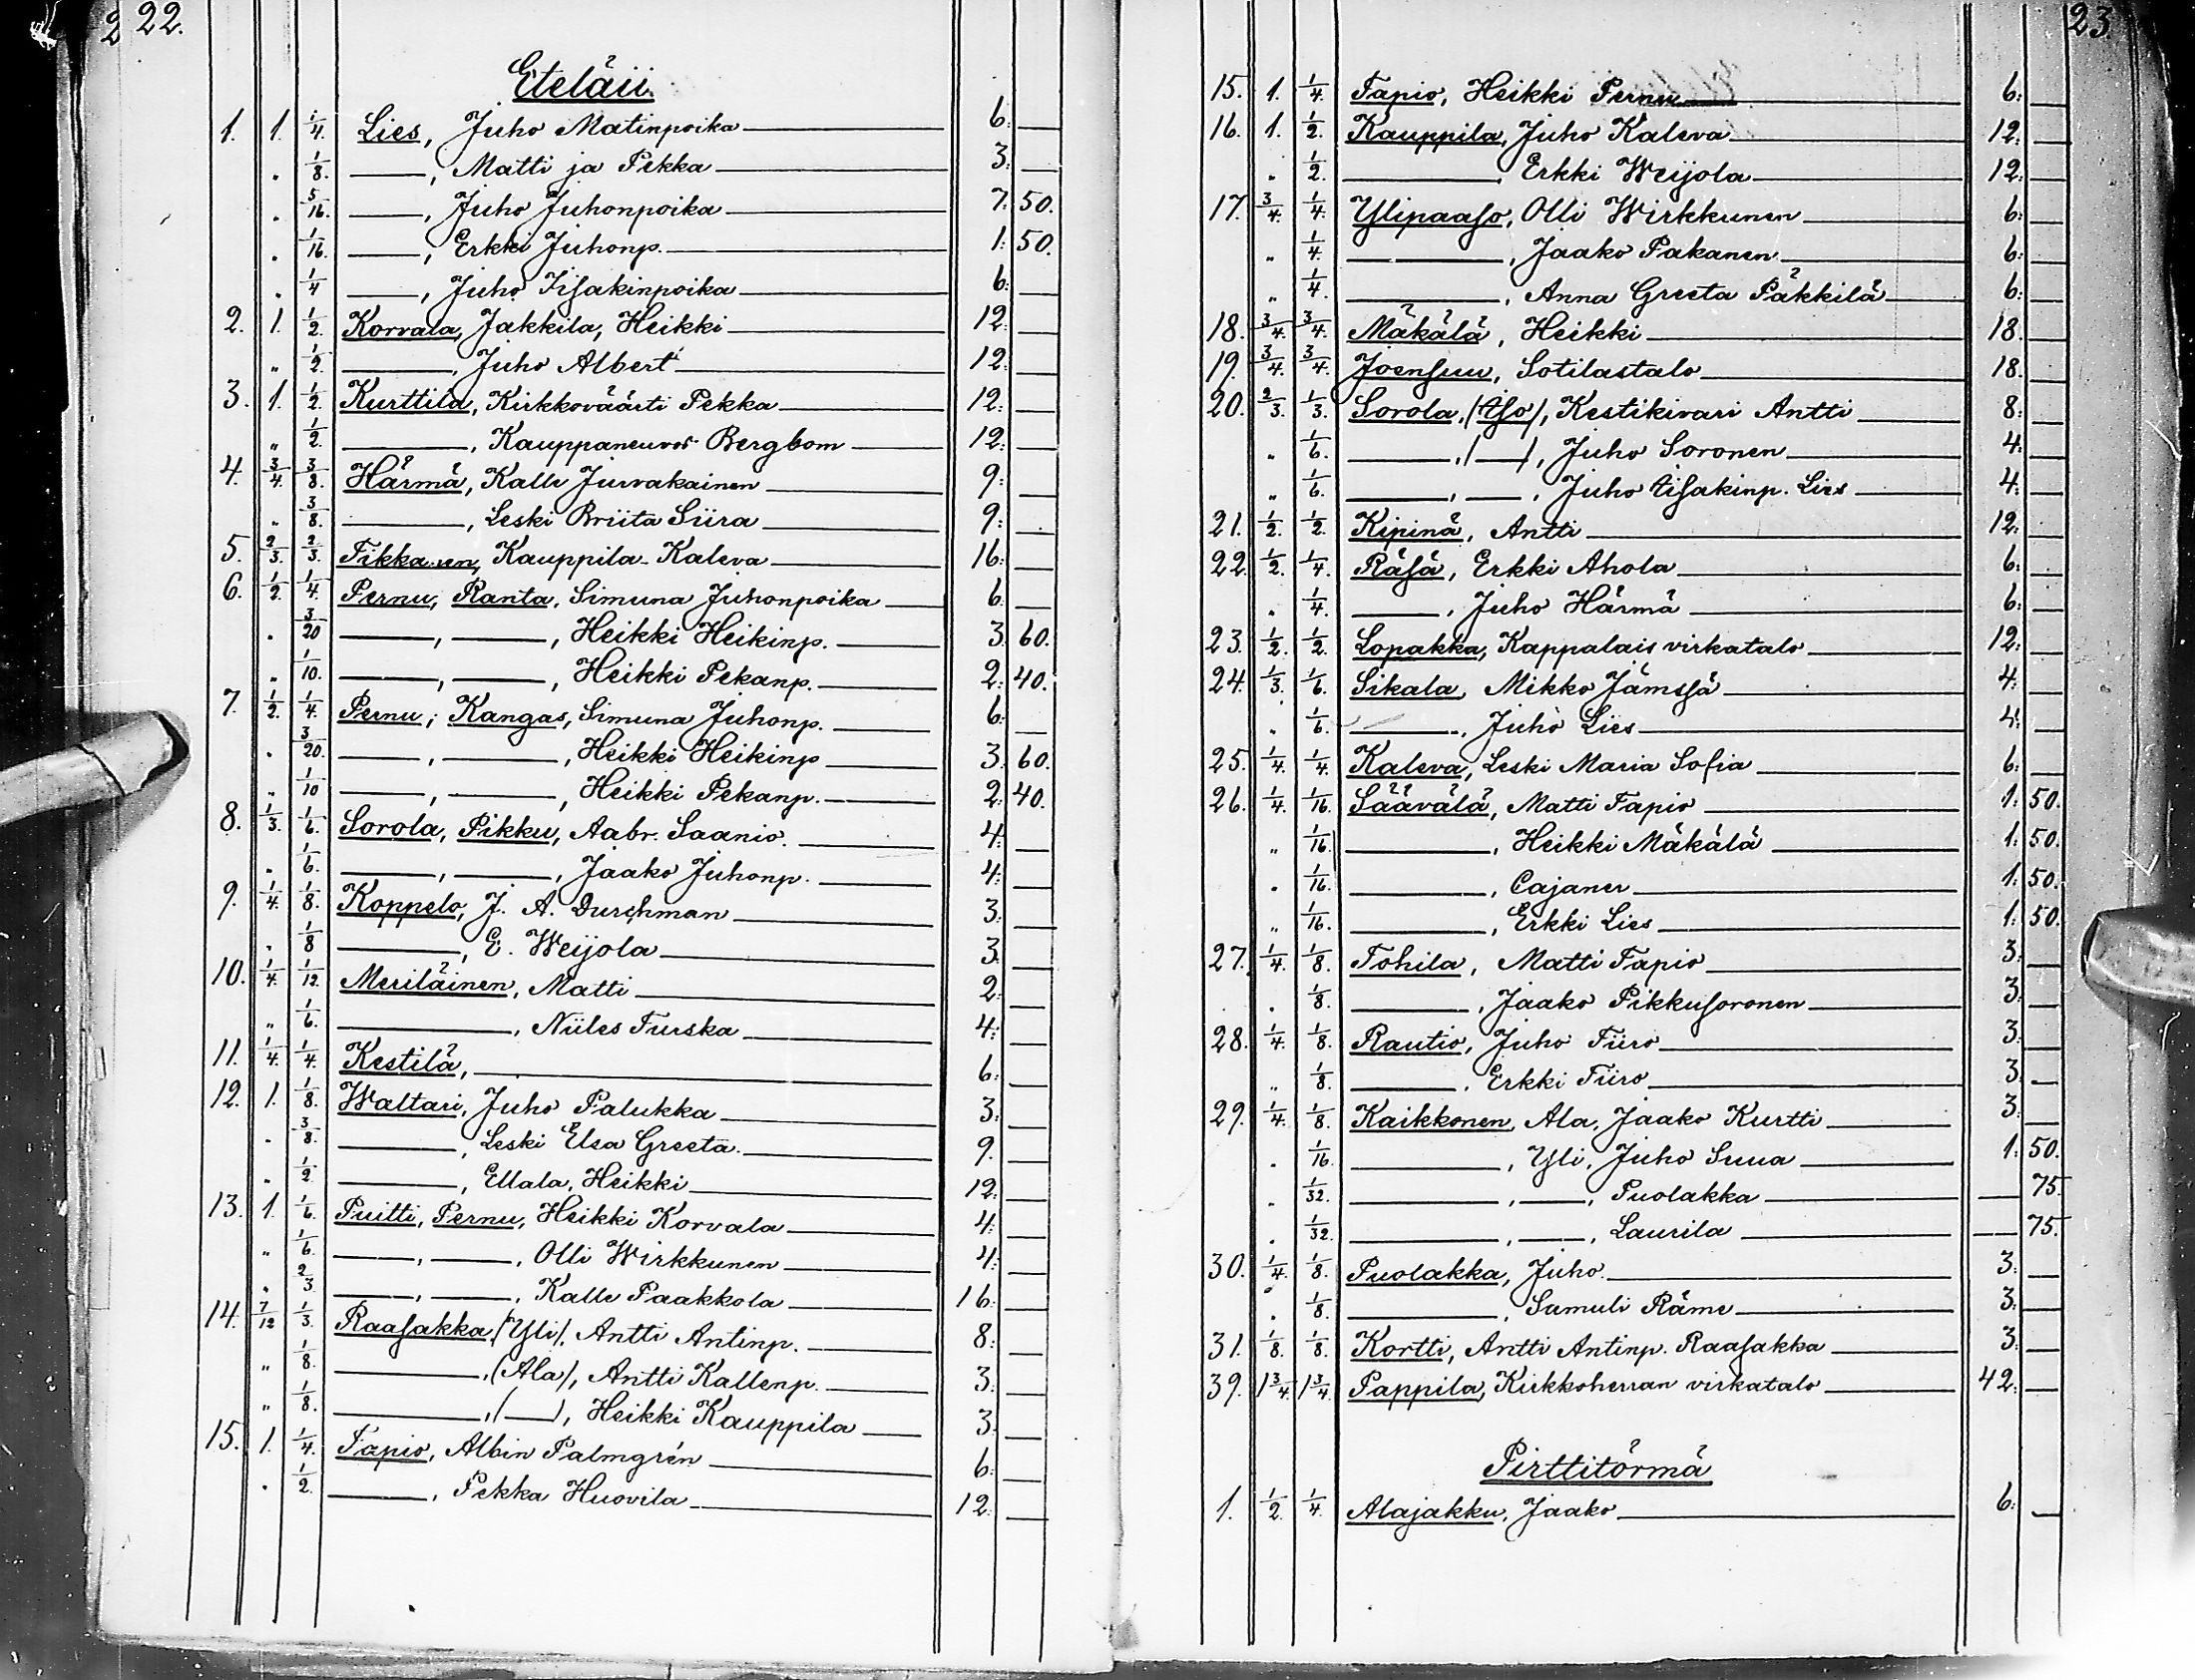 2 22.
Eteläii.
1. 1. 1/4. Lies, Juho Matinpoika 6: —
" 1/8. —, Matti ja Pekka 3: —
" 5/16. —, Juho Juhonpoika 7: 50.
" 1/16. —, Erkki Juhonp. 1: 50.
" 1/4 —, Juho Iisakinpoika 6: —
2. 1. 1/2. Korvala, Jakkila, Heikki 12: —
" 1/2. —, Juho Albert 12: —
3. 1. 1/2. Kurttila, Kirkkoväärti Pekka 12: —
" 1/2. —, Kauppaneuvos Bergbom 12: —
4. 3/4. 3/8. Härmä, Kalle Jurvakainen 9: —
" 3/8. —, Leski Briita Siira 9: —
5. 2/3. 2/3. Tikkanen, Kauppila-Kaleva 16: —
6. 1/2. 1/4. Pernu, Ranta, Simuna Juhonpoika 6 —
" 3/20 —, —, Heikki Heikinp. 3. 60.
" 1/10. —, —, Heikki Pekanp. 2: 40.
7. 1/2. 1/4. Pernu, Kangas, Simuna Juhonp. 6: —
" 3/20. —, —, Heikki Heikinp 3. 60.
" 1/10 —, —, Heikki Pekanp. 2: 40.
8. 1/3. 1/6. Sorola, Pikku, Aabr. Saanio. 4: —
" 1/6. —, —, Jaako Juhonp. 4: —
9. 1/4. 1/8. Koppelo, J. A. Durchman 3: —
" 1/8 —, E. Weijola 3. —
10. 1/4. 1/12. Meriläinen, Matti 2: —
" 1/6. —, Niiles Turska 4: —
11. 1/4. 1/4. Kestilä, 6: —
12. 1. 1/8. Waltari, Juho Palukka 3: —
" 3/8. —, Leski Elsa Greeta. 9. —
" 1/2 —, Ellala, Heikki 12: —
13. 1. 1/6. Puitti, Pernu, Heikki Korvala 4: —
" 1/6. —, —, Olli Wirkkunen 4: —
" 2/3 —, —, Kalle Paakkola 16: —
14. 7/12 1/3. Raasakka, (Yli), Antti Antinp. 8: —
" 1/8. —, (Ala), Antti Kallenp. 3: —
" 1/8. —, (—), Heikki Kauppila 3. —
15. 1. 1/4. Tapio, Albin Palmgrén 6: —
" 1/2. —, Pekka Huovila 12: —
23.
15. 1. 1/4. Tapio, Heikki Pernu 6: —
16. 1. 1/2. Kauppila, Juho Kaleva 12: —
" 1/2. —, Erkki Weijola 12: —
17. 3/4. 1/4. Ylipaaso, Olli Wirkkunen 6: —
" 1/4. —, Jaako Pakanen 6: —
" 1/4. —, Anna Greeta Päkkilä 6: —
18. 3/4. 3/4. Mäkälä, Heikki 18. —
19. 3/4. 3/4. Joensuu, Sotilastalo 18. —
20. 2/3. 1/3. Sorola, (Iso), Kestikivari Antti 8: —
" 1/6. —, (—), Juho Soronen 4: —
" 1/6. —, —, Juho Iisakinp. Lies 4: —
21. 1/2. 1/2. Kipinä, Antti 12: —
22. 1/2. 1/4. Räsä, Erkki Ahola 6: —
" 1/4. —, Juho Härmä 6: —
23. 1/2. 1/2. Lopakka, Kappalais virkatalo 12: —
24. 1/3. 1/6. Sikala, Mikko Jämssä 4: —
" 1/6. —, Juho Lies 4: —
25. 1/4. 1/4. Kaleva, Leski Maria Sofia 6: —
26. 1/4. 1/16. Säävälä, Matti Tapio 1: 50.
" 1/16. —, Heikki Mäkälä 1: 50.
" 1/16. —, Cajaner 1: 50.
" 1/16. —, Erkki Lies 1: 50.
27. 1/4. 1/8. Tohila, Matti Tapio 3: —
" 1/8. —, Jaako Pikkusoronen 3: —
28. 1/4. 1/8. Rautio, Juho Tiiro 3: —
" 1/8. —, Erkki Tiiro 3: —
29. 1/4. 1/8. Kaikkonen, Ala, Jaako Kurtti 3: —
" 1/16. —, Yli, Juho Suua 1: 50.
" 1/32. —, —, Puolakka — 75.
" 1/32. —, —, Laurila — 75.
30. 1/4. 1/8. Puolakka, Juho. 3: —
" 1/8. —, Samuli Räme 3: —
31. 1/8. 1/8. Kortti, Antti Antinp. Raasakka 3: —
39. 1 3/4. 1 3/4. Pappila, Kirkkoherran virkatalo 42: —
Pirttitörmä
1. 1/2. 1/4. Alajakku, Jaako 6: —